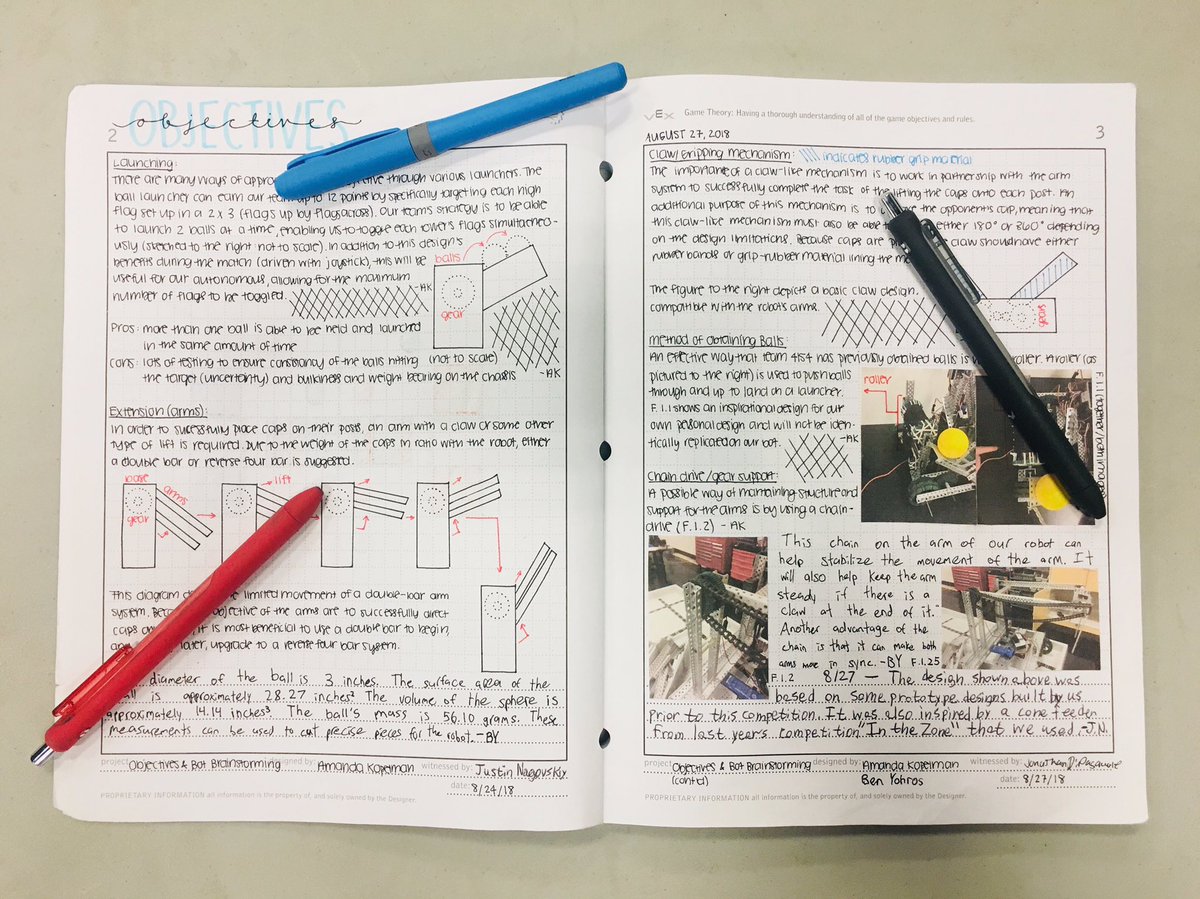 OBJECTIVES
objectives
2
Launching:
There are many ways of appro through various launchers. The
ball launcher can earn our team up to 12 points by specifically targeting each high
flag set up in a 2 x 3 (flags up by flags across). Our team's strategy is to be able
to launch 2 balls at a time, enabling us to toggle each tower's flags simultaneo-
usly (sketched to the right not to scale). In addition to this design's
benefits during the match (driven with joystick), this will be
useful for our autonomous, allowing for the maximum
number of flags to be toggled.
-AK
balls
gear
Pros: more than one ball is able to be held and launched
in the same amount of time
Cons: lots of testing to ensure consistancy of the balls hitting
the target (uncertainty) and bulkiness and weight bearing on the chassis
(not to scale)
-AK
Extension (arms):
In order to sucessfully place caps on their posts, an arm with a claw or some other
type of lift is required. Due to the weight of the caps in ratio with the robot, either
a double bar or reverse four bar is suggested.
base
arms
gear
lift
This diagram limited movement of a double-bar arm
system. objective of the arms are to successfully direct
caps it is most beneficial to use a double bar to begin,
later, upgrade to a reverse four bar system.
diameter of the ball is 3 inches. The surface area of the
is approximately 28.27 inches². The volume of the sphere is
approximately 14.14 inches³. The ball's mass is 56.10 grams. These
measurements can be used to cut precise pieces for the robot. -BY
project
Objectives & Bot Brainstorming
Amanda Kopelman
witnessed by:
Justin Nagovskiy
date:
8/24/18
PROPRIETARY INFORMATION all information is the property of, and solely owned by the Designer.
VEX
Game Theory: Having a thorough understanding of all of the game objectives and rules.
AUGUST 27, 2018
3
Claw/Gripping mechanism:
indicates rubber grip material
The importance of a claw-like mechanism is to work in partnership with the arm
system to successfully complete the task of the lifting the caps onto each post. An
additional purpose of this mechanism is to the opponent's cap, meaning that
this claw-like mechanism must also be able either 180° or 360° depending
on the design limitations. Because caps are claw should have either
rubber bands or grip-rubber material lining the
The figure to the right depicts a basic claw design,
compatible with the robot's arms.
gears
Method of obtaining Balls:
An effective way that team 4154 has previously obtained balls is roller. A roller (as
pictured to the right) is used to push balls
through and up to land on a launcher.
F.1.1 shows an inspirational design for our
own personal design and will not be iden-
tically replicated on our bot.
-AK
roller
F.1.1
Chain drive/gear support:
A possible way of maintaining structure and
support for the arms is by using a chain-
drive (F.1.2) - AK
This chain on the arm of our robot can
help stabilize the movement of the arm. It
will also help keep the arm
steady if there is a
claw at the end of it.
Another advantage of the
chain is that it can make both
arms move in sync. -BY
F.1.25
F.1.2
8/27 — The design shown above was
based on some prototype designs built by us
prior to this competition. It was also inspired by a cone feeder
from last year's competition "In the Zone" that we used. -J.N.
project
Objectives & Bot Brainstorming
(cont'd)
designed by:
Amanda Kopelman
Ben Yohros
witnessed by:
date:
8/27/18
PROPRIETARY INFORMATION all information is the property of, and solely owned by the Designer.